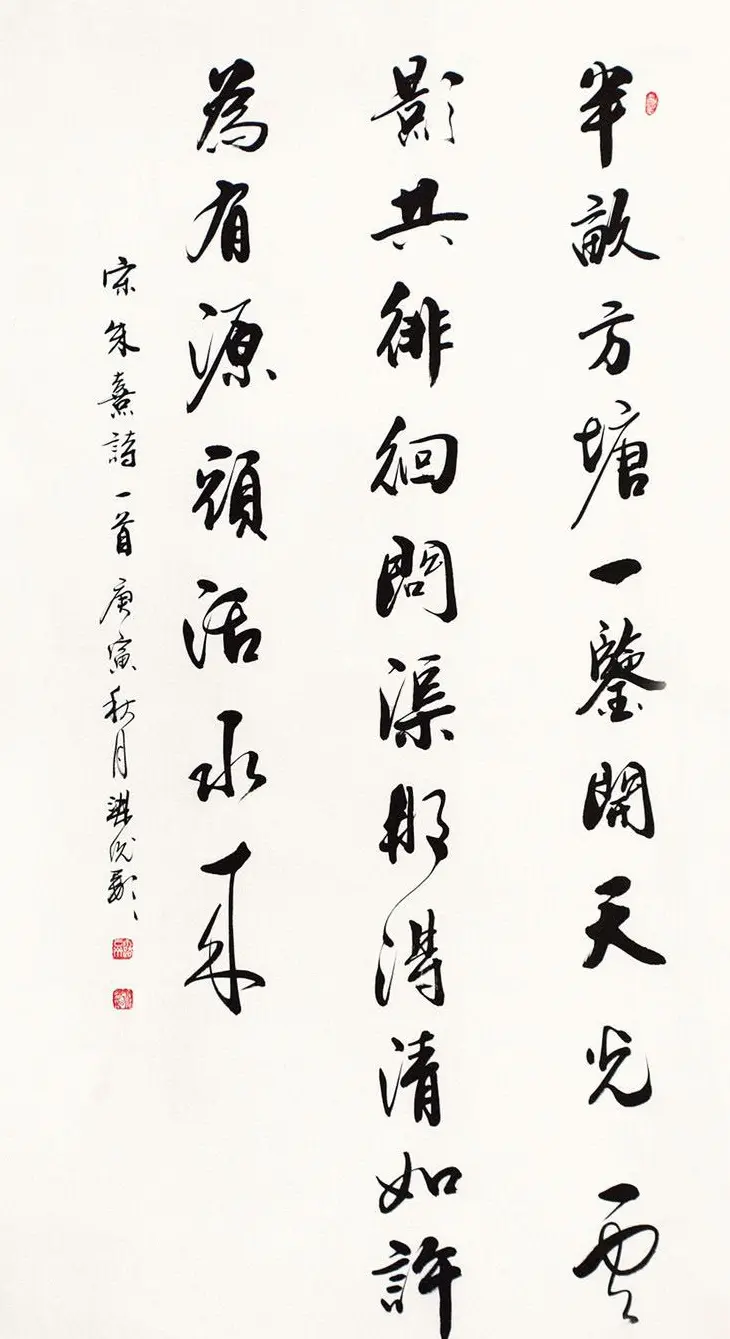 半畝方塘一鑒開天光雲
影共徘徊問渠那得清如許
為有源頭活水來
宋朱熹詩一首庚寅秋月